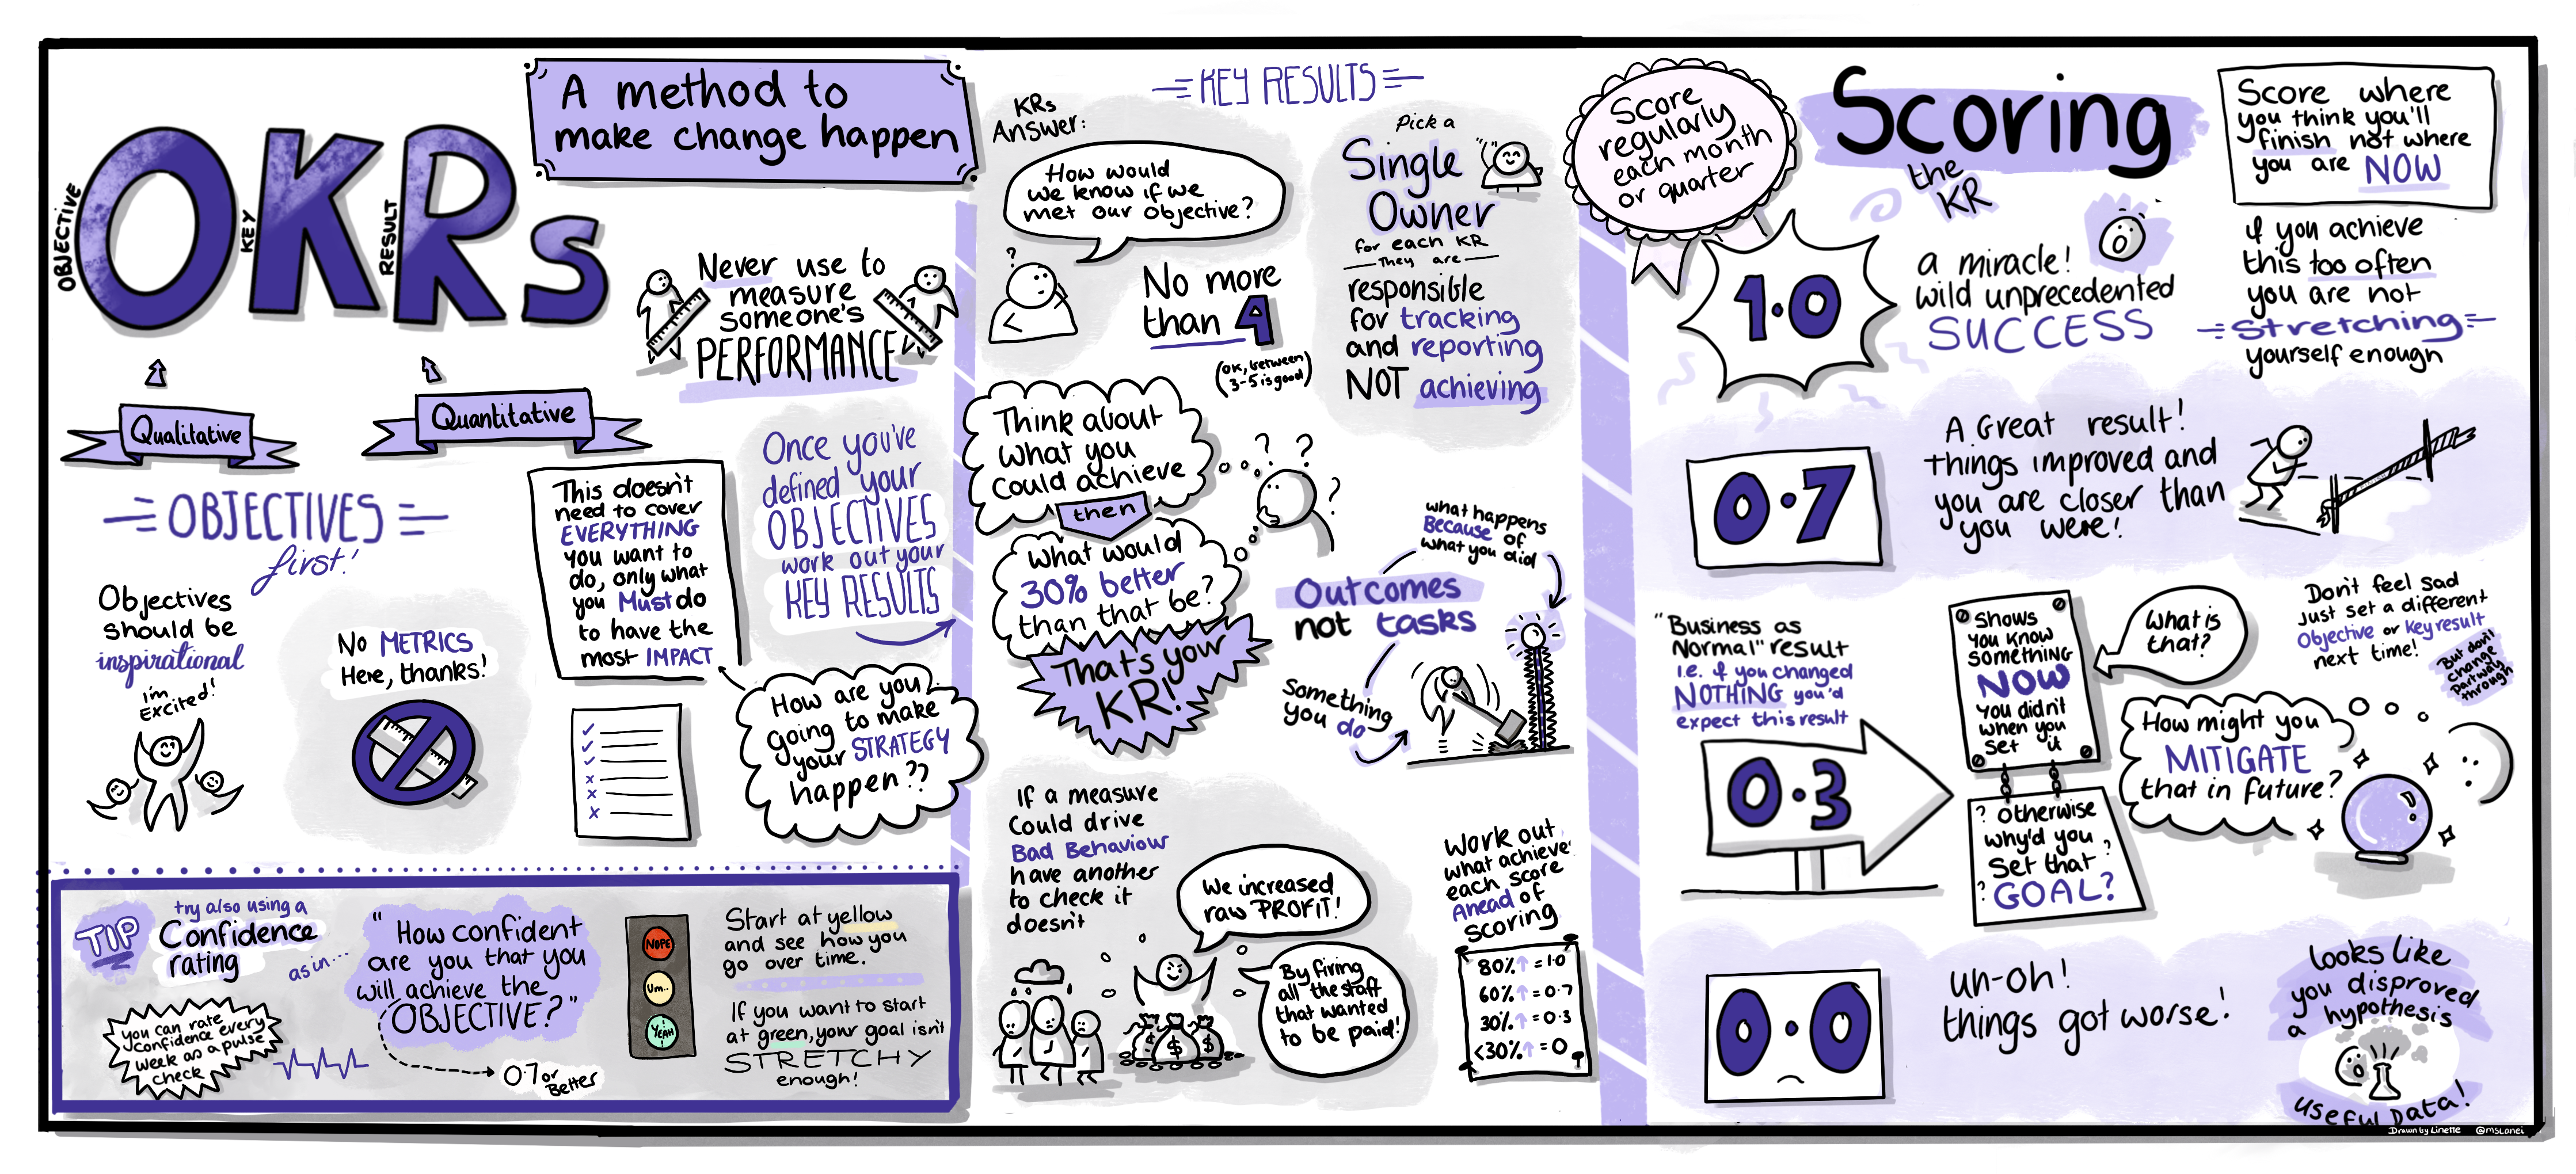 OBJECTIVE
KEY
RESULT
OKRs
A method to
make change happen
Never use to
measure
someone's
PERFORMANCE
Qualitative
Quantitative
OBJECTIVES
first!
Objectives
should be
inspirational
I'm
Excited!
No METRICS
Here, thanks!
This doesn't
need to cover
EVERYTHING
you want to
do, only what
you Must do
to have the
most IMPACT
Once you've
defined your
OBJECTIVES
work out your
KEY RESULTS
How are you
going to make
your STRATEGY
happen??
TIP
try also using a
Confidence
rating
as in...
you can rate
confidence every
week as a pulse
check
"How confident
are you that you
will achieve the
OBJECTIVE?"
0.7 or
Better
NOPE
Um..
YEAH!
Start at yellow
and see how you
go over time.
If you want to start
at green, your goal isn't
STRETCHY
enough!
KEY RESULTS
KRs
Answer:
How would
we know if we
met our objective?
?
No more
than 4
(OK, between
3-5 is good)
Pick a
Single
Owner
for each KR
They are
responsible
for tracking
and reporting
NOT achieving
Think about
what you
could achieve
then
What would
30% better
than that be?
That's your
KR!
? ?
?
what happens
Because of
what you did
Outcomes
not tasks
Something
you do
If a measure
could drive
Bad Behaviour
have another
to check it
doesn't
We increased
raw PROFIT!
By firing
all the staff
that wanted
to be paid!
$ $ $
Work out
what achieve
each score
Ahead of
scoring
80%↑ = 1.0
60%↑ = 0.7
30%↑ = 0.3
<30%↑ = 0
Score
regularly
each month
or quarter
Scoring
the
KR
Score where
you think you'll
finish not where
you are NOW
1.0
a miracle!
wild unprecedented
SUCCESS
if you achieve
this too often
you are not
stretching
yourself enough
0.7
A Great result!
things improved and
you are closer than
you were!
"Business as
Normal" result
i.e. if you changed
NOTHING you'd
expect this result
0.3
Shows
you know
something
NOW
you didn't
when you
set it
? otherwise
why'd you ?
set that
? GOAL?
What is
that?
Don't feel sad
just set a different
Objective or Key result
next time!
But don't
change
partway
through
How might you
MITIGATE
that in future?
0.0
uh-oh!
things got worse!
looks like
you disproved
a hypothesis
useful DATA!
Drawn by Linette @mslanei